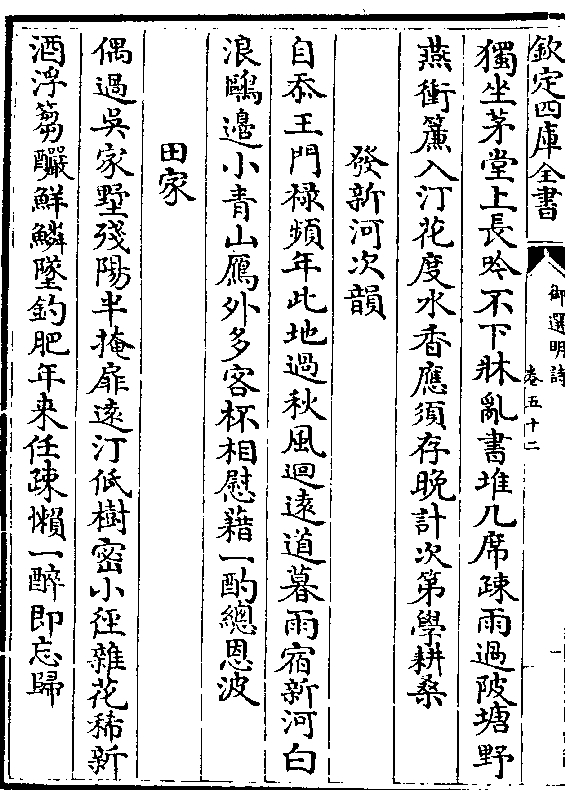 欽定四庫全書
御選明詩
卷五十二
一
獨坐茅堂上長吟不下牀亂書堆几席疎雨過陂塘野
燕銜簾入汀花度水香應須存晚計次第學耕桑
發新河次韻
自忝王門禄頻年此地過秋風迴逺道暮雨宿新河白
浪鷗邊小青山鴈外多客杯相慰藉一酌總恩波
田家
偶過吳家墅殘陽半掩扉逺汀低樹密小徑雜花稀新
酒浮篘釅鮮鱗墜釣肥年来任疎懶一醉即忘歸